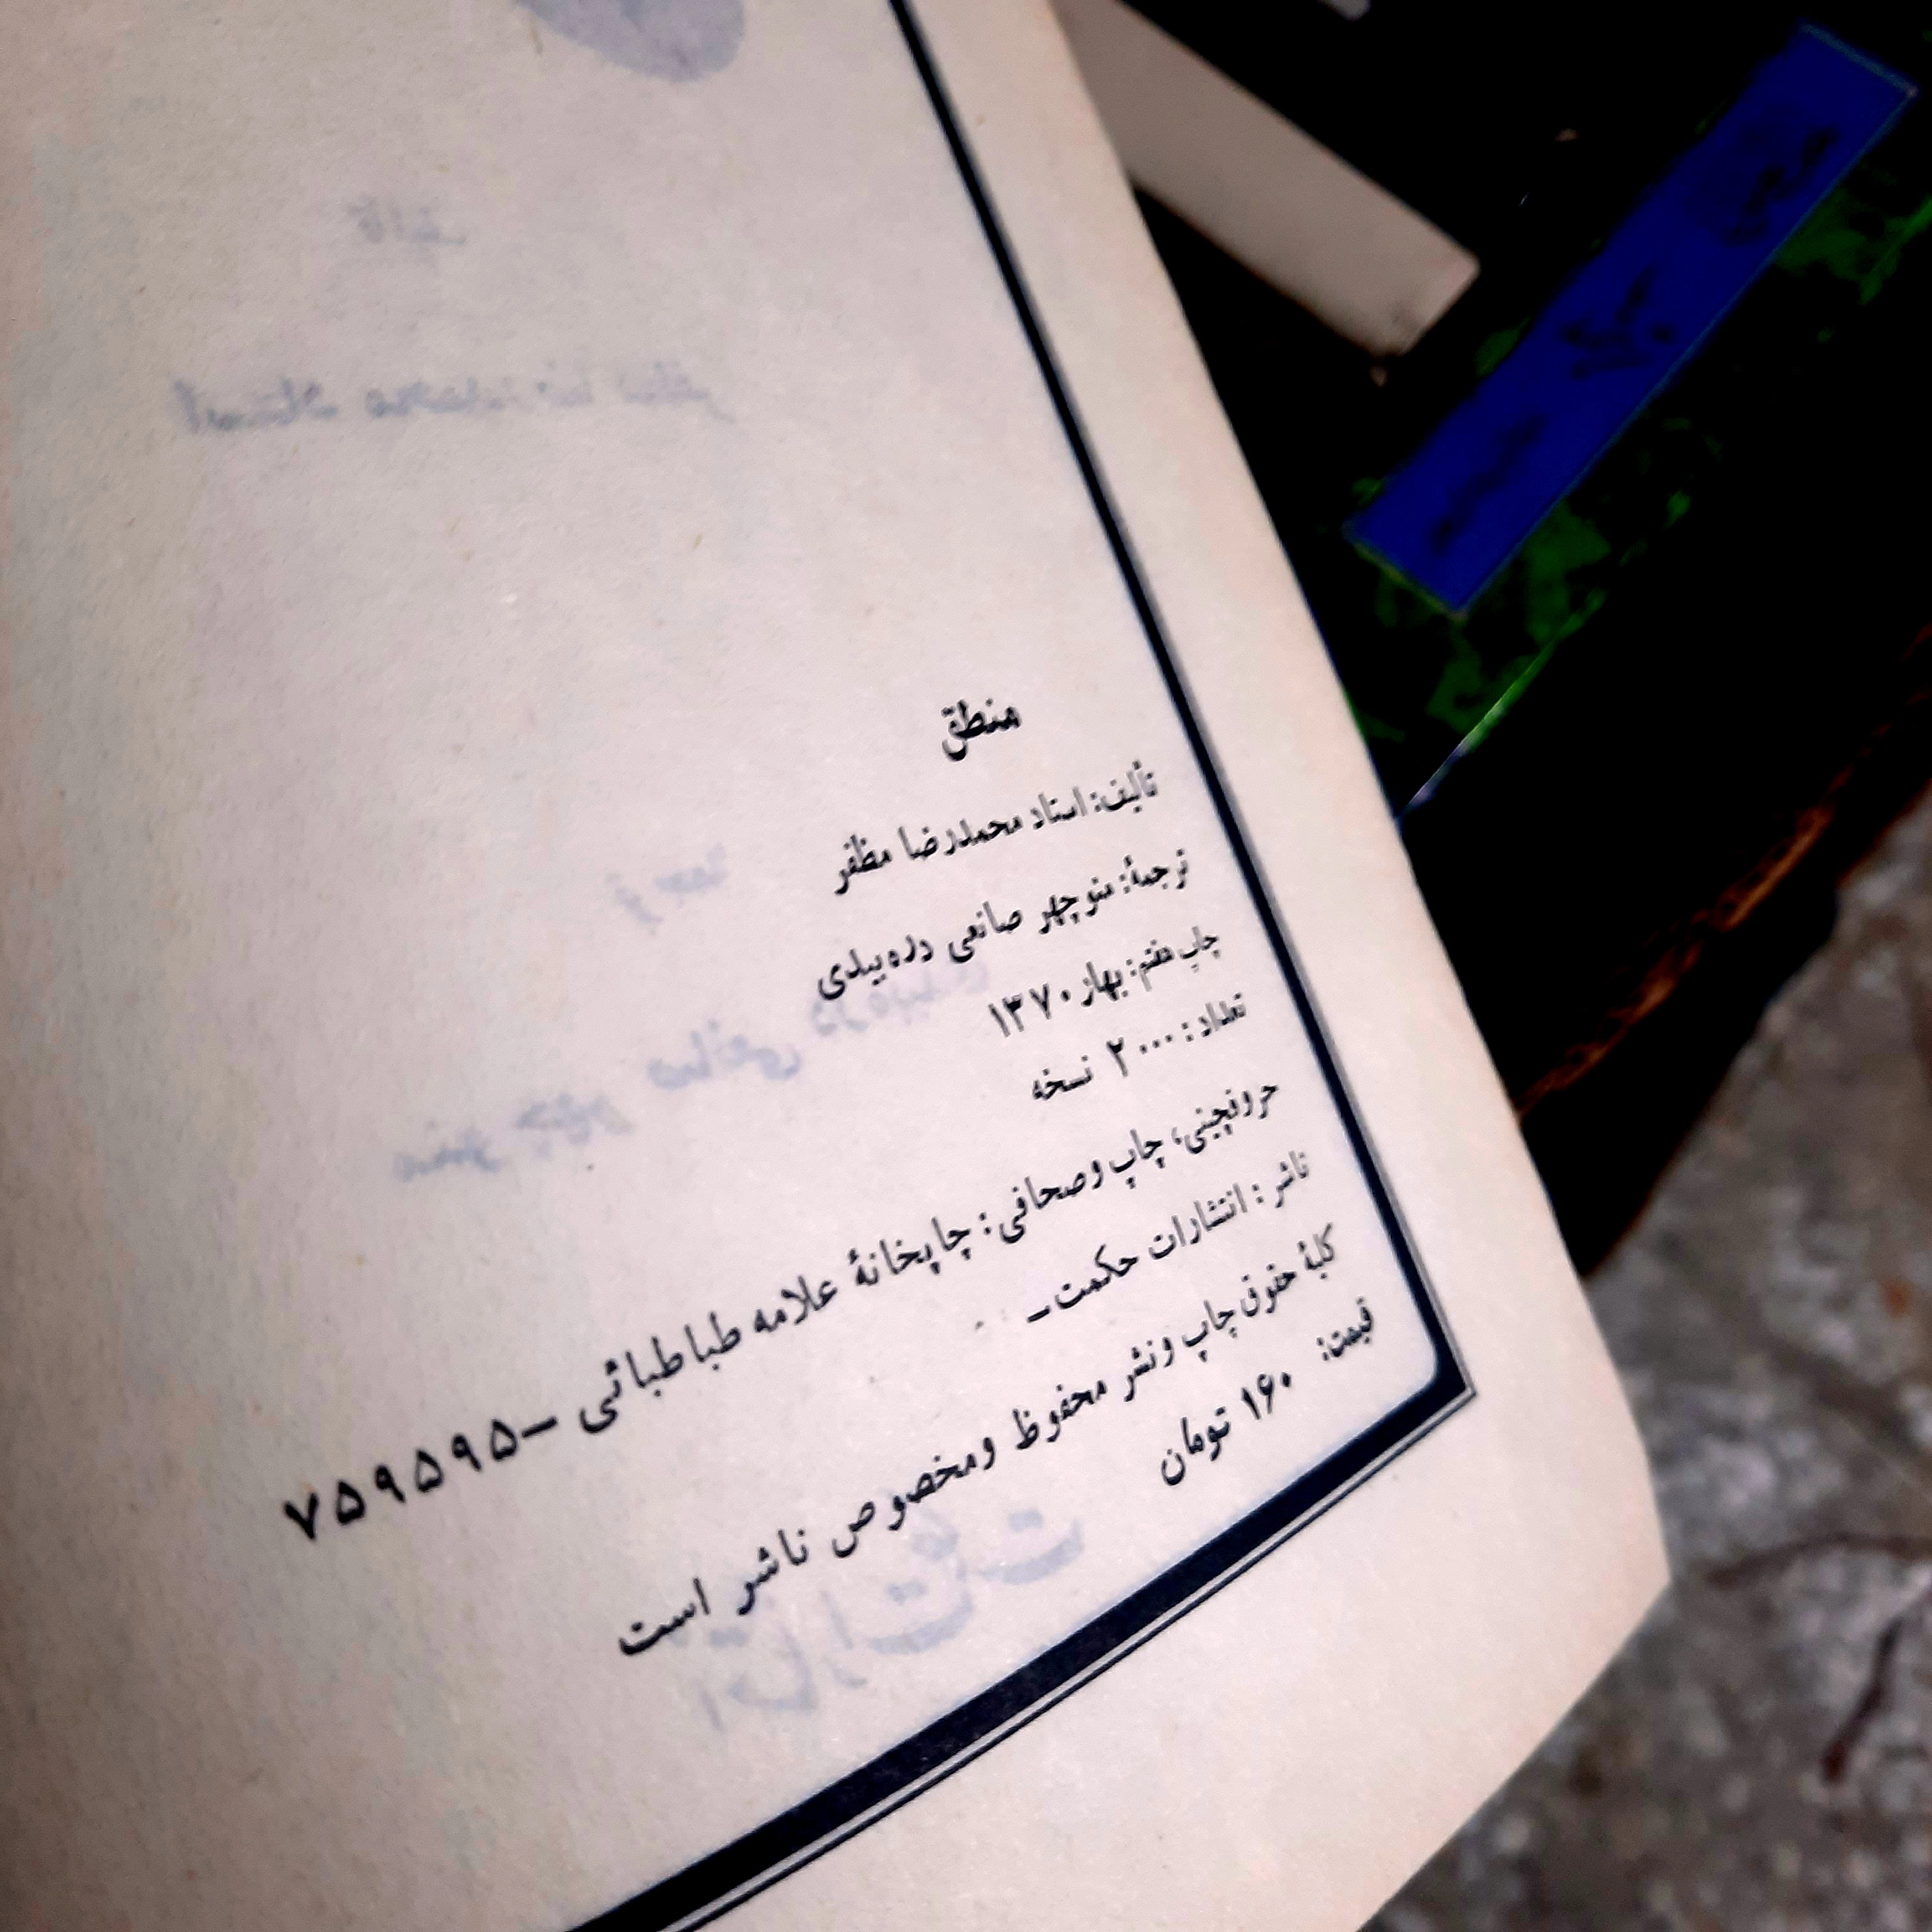 منطق
تألیف: استاد محمدرضا مظفر
ترجمهٔ: منوچهر صانعی دره‌بیدی
چاپ هفتم: بهار ۱۳۷۰
تعداد: ۲۰۰۰ نسخه
حروفچینی، چاپ وصحافی: چاپخانهٔ علامه طباطبائی – ۷۵۹۵۹۵
ناشر: انتشارات حکمت –
کلیهٔ حقوق چاپ ونشر محفوظ ومخصوص ناشر است
قیمت: ۱۶۰ تومان